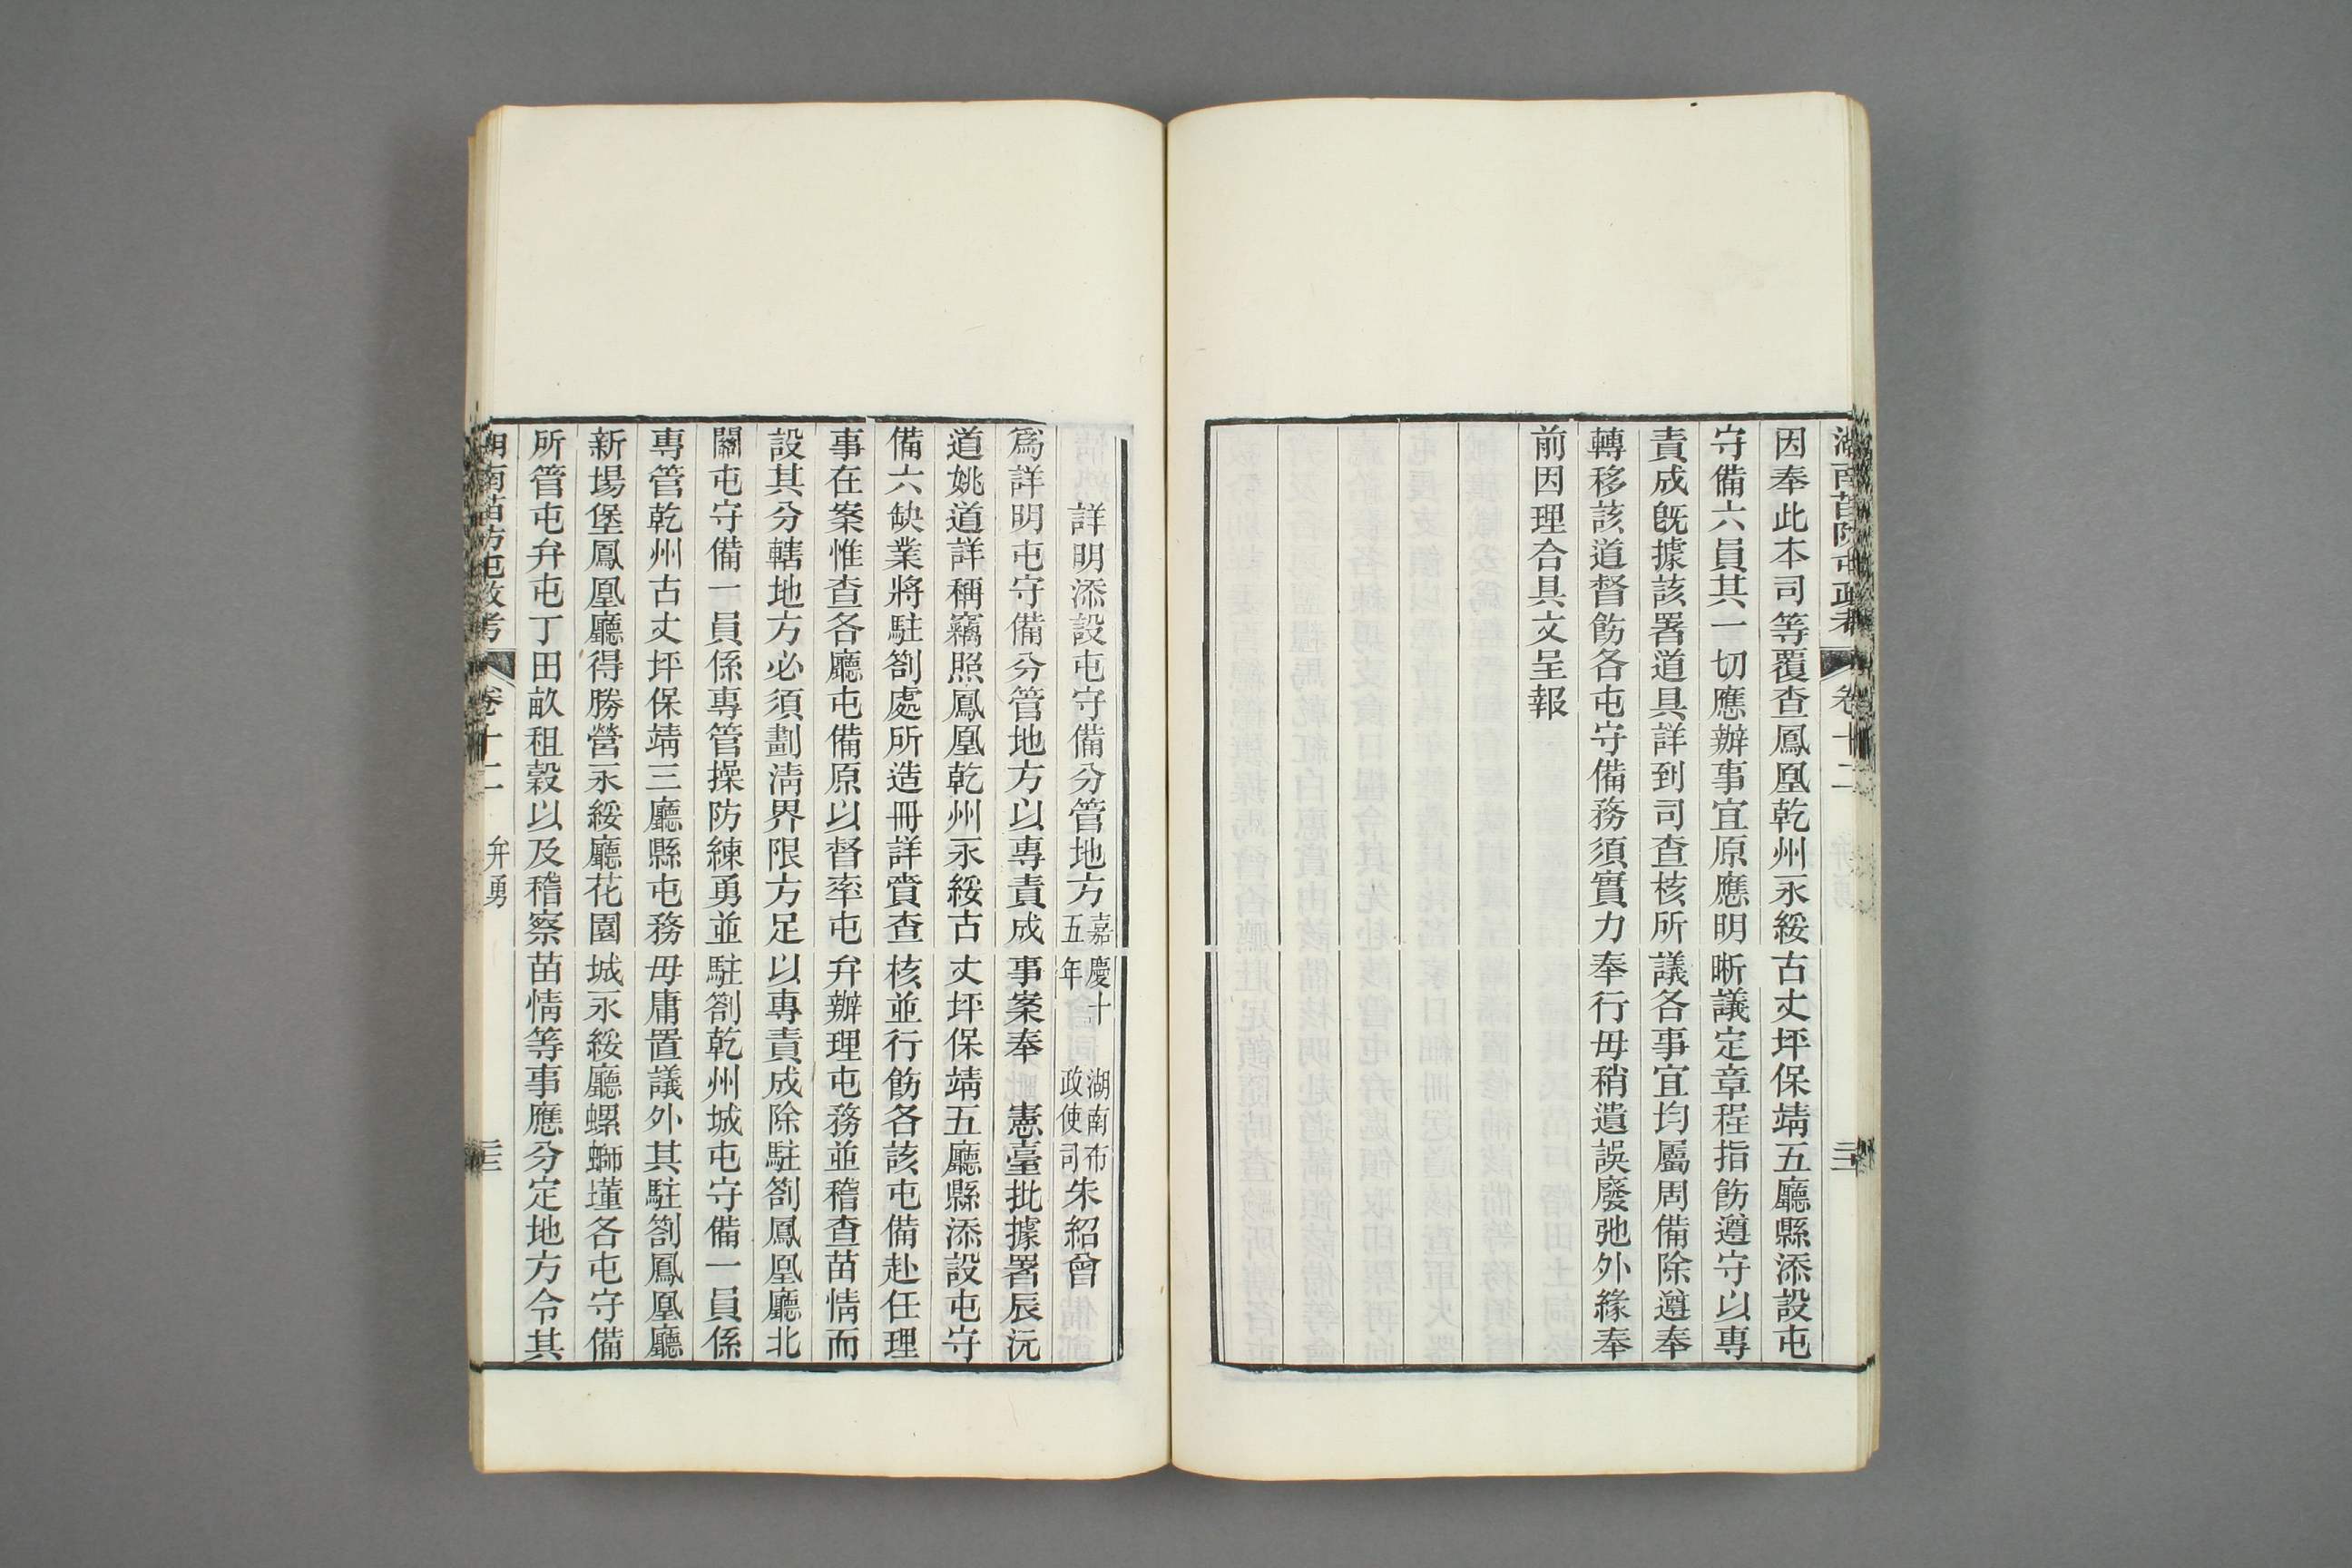 湖南苗防屯政考 卷十二
因奉此本司等覆查鳳凰乾州永綏古丈坪保靖五廳縣添設屯
守備六員其一切應辦事宜原應明晰議定章程指飭遵守以專
責成旣據該署道具詳到司查核所議各事宜均屬周備除遵奉
轉移該道督飭各屯守備務須實力奉行毋稍遺誤廢弛外緣奉
前因理合具文呈報
詳明添設屯守備分管地方嘉慶十五年 湖南布政使司朱紹曾
爲詳明屯守備分管地方以專責成事案奉 憲臺批據署辰沅
道姚道詳稱竊照鳳凰乾州永綏古丈坪保靖五廳縣添設屯守
備六缺業將駐劄處所造冊詳賫查核並行飭各該屯備赴任理
事在案惟查各廳屯備原以督率屯弁辦理屯務並稽查苗情而
設其分轄地方必須劃淸界限方足以專責成除駐劄鳳凰廳北
關屯守備一員係專管操防練勇並駐劄乾州城屯守備一員係
專管乾州古丈坪保靖三廳縣屯務毋庸置議外其駐劄鳳凰廳
新場堡鳳凰廳得勝營永綏廳花園城永綏廳螺螄墐各屯守備
所管屯弁屯丁田畝租穀以及稽察苗情等事應分定地方令其
湖南苗防屯政考 卷十二 弁勇